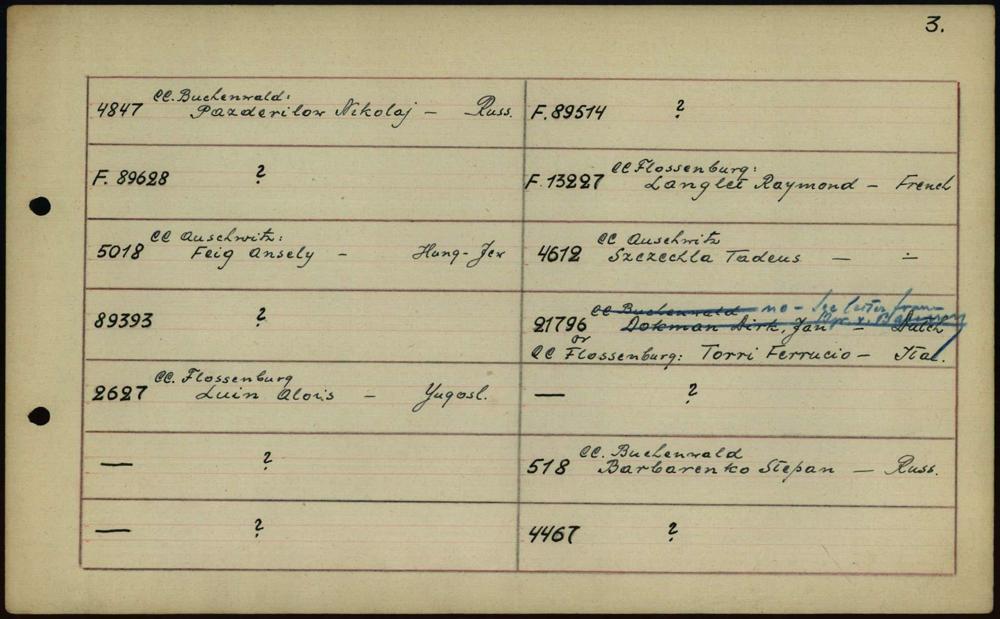 3.
CC. Buchenwald:
4847 Pazderilow Nikolaj — Russ.
F. 89628 ?
CC Auschwitz:
5018 Feig Ansely — Hung-Jew
89393 ?
CC. Flossenburg
2627 Luin Alois — Yugosl.
— ?
— ?
F. 89514 ?
CC Flossenburg:
F. 13227 Langlet Raymond — French
CC Auschwitz
4612 Szczechla Tadeus — ÷
CC Buchenwald no - See letter from
21796 Dokman Dirk, Jan — Dutch
or
CC Flossenburg: Torri Ferrucio — Ital.
— ?
CC. Buchenwald
518 Barbarenko Stepan — Russ.
4467 ?